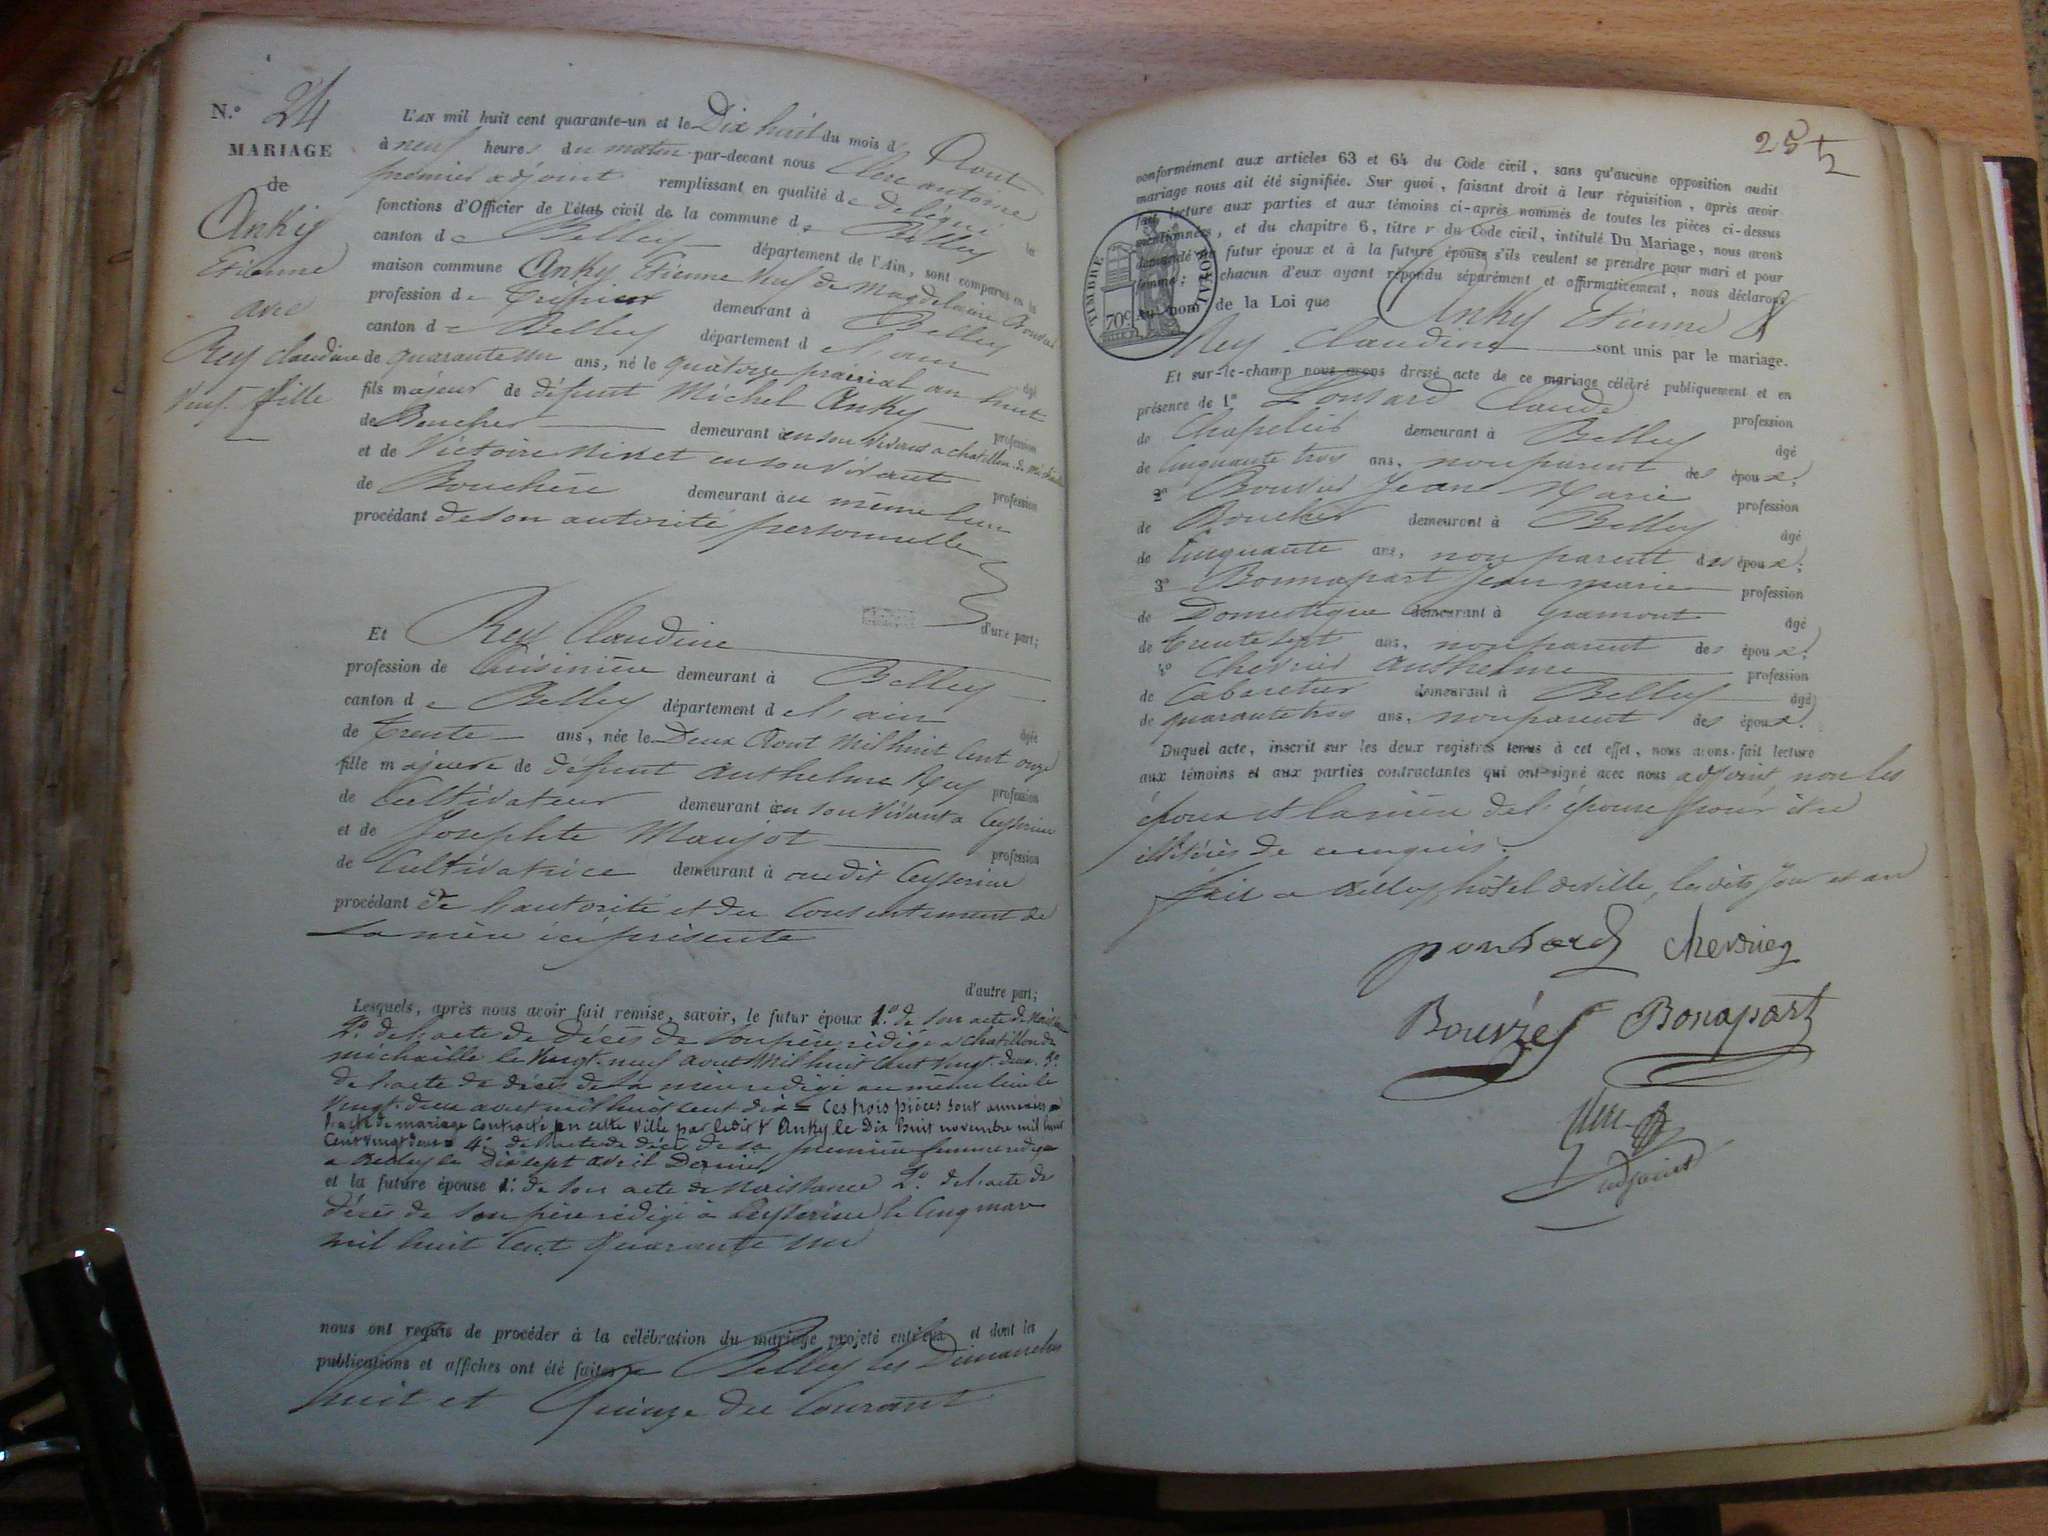 N.° 24
MARIAGE
de
Anky
Etienne
avec
Rey Claudine
Veuf. fille
L'AN mil huit cent quarante-un et le Dix huit du mois d'Aout
à neuf heures du matin par-devant nous Clerc antoine
premier adjoint remplissant en qualité de délégué les
fonctions d'Officier de l'état civil de la commune de Belley
canton de Belley département de l'Ain, sont comparus en la
maison commune Anky Etienne Veuf de Magdelaine Bouvret
profession de Tripier demeurant à Belley
canton de Belley département de l'ain âgé
de quarante un ans, né le quatorze prairial an huit
fils majeur de défunt Michel Anky profession
de Boucher demeurant à en son vivant a chatillon de michaille
et de Victoire Minet en son vivant profession
de Bouchère demeurant à au même lieu
procédant de son autorité personnelle
d'une part;
Et Rey Claudine
profession de Cuisinière demeurant à Belley
canton de Belley département de l'ain âgée
de Trente ans, née le Deux Aout mil huit Cent onze
fille majeure de défunt Anthelme Rey profession
de Cultivateur demeurant à en son vivant a Ceyzerieu
et de Josephte Maujot profession
de Cultivatrice demeurant à audit Ceyzerieu
procédant de l'autorité et du Consentement de
sa mère ici présente
d'autre part;
Lesquels, après nous avoir fait remise, savoir, le futur époux 1.° de son acte de Naissance
2.° de l'acte de décès de son père rédigé a chatillon de
michaille le Vingt-neuf avril mil huit Cent Vingt-deux 3.°
de l'acte de décès de sa mère rédigé au même lieu le
Vingt-deux avril mil huit cent dix = Ces trois pièces sont annexées a
l'acte de mariage contracté en cette ville par ledit Anky le Dix huit novembre mil huit
Cent vingt deux 4.° de l'acte de décès de sa première femme rédigé
a Belley le Dix sept avril Dernier
et la future épouse 1.° de son acte de Naissance 2.° de l'acte de
décès de son père rédigé à Ceyzerieu le Cinq mars
mil huit Cent Quarante un
nous ont requis de procéder à la célébration du mariage projeté entr'eux et dont les
publications et affiches ont été faites a Belley les Dimanches
huit et Quinze du Courant
25 1/2
conformément aux articles 63 et 64 du Code civil, sans qu'aucune opposition audit
mariage nous ait été signifiée. Sur quoi, faisant droit à leur réquisition, après avoir
fait lecture aux parties et aux témoins ci-après nommés de toutes les pièces ci-dessus
mentionnées, et du chapitre 6, titre v du Code civil, intitulé Du Mariage, nous avons
demandé au futur époux et à la future épouse s'ils veulent se prendre pour mari et pour
femme; chacun d'eux ayant répondu séparément et affirmativement, nous déclarons
au nom de la Loi que Anky Etienne &
Rey Claudine sont unis par le mariage.
TIMBRE ROYAL
70c
Et sur-le-champ nous avons dressé acte de ce mariage célébré publiquement et en
présence de 1° Ponsard Claude profession
de Chapelier demeurant à Belley âgé
de Cinquante trois ans, non parent des époux;
2° Bouvier Jean Marie profession
de Boucher demeurant à Belley âgé
de Cinquante ans, non parent des époux;
3° Bonnapart Jean marie profession
de Domestique demeurant à Gramont âgé
de Trente sept ans, non parent des époux;
4° Chevrier Anthelme profession
de Cabaretier demeurant à Belley âgé
de quarante trois ans, non parent des époux.
Duquel acte, inscrit sur les deux registres tenus à cet effet, nous avons fait lecture
aux témoins et aux parties contractantes qui ont signé avec nous adjoint, non les
époux et la mère de l'épouse pour être
illitérés de ce enquis.
fait a Belley, hôtel de ville, lesdits Jour et an
ponsard Chevrier
Bouvier Bonapart
Clerc
adjoint